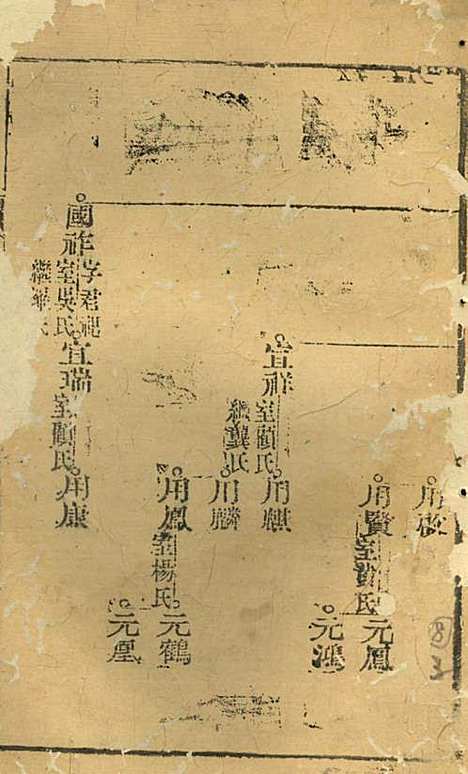 用
用賢
室
氏
元鳳
元鴻
宣祥
室顧氏
繼龔氏
用麒
用麟
用鳳
室楊氏
元鶴
元凰
國祚
字君
室吳氏
繼
氏
宣瑞
室顧氏
用康
8
3